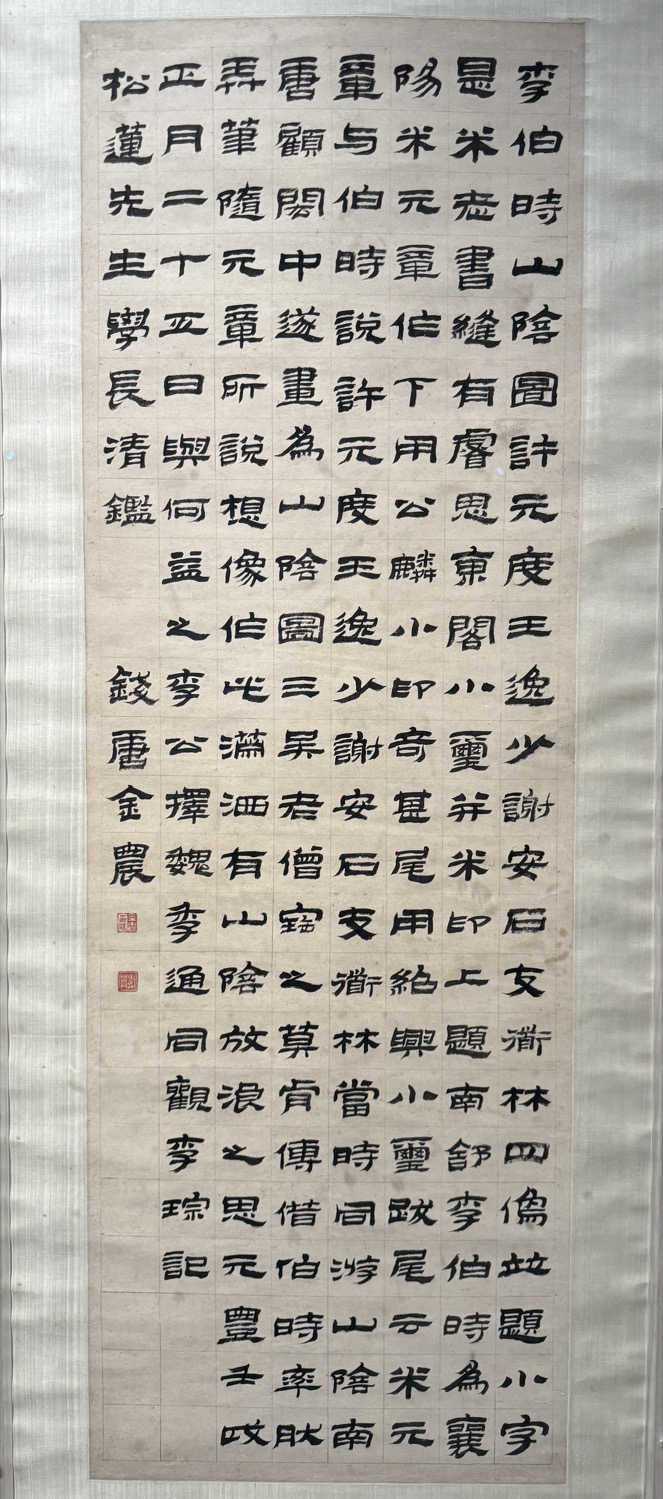 李伯時山陰圖許元度王逸少謝安石支衜林四像竝題小字
是米老書縫有睿思東閣小璽并米印上題南舒李伯時為襄
陽米元章作下用公麟小印奇甚尾用紹興小璽跋尾云米元
章与伯時說許元度王逸少謝安石支衜林當時同游山陰南
唐顧閎中遂畫為山陰圖三吳老僧寶之莫肯傳借伯時率肰
弄筆隨元章所說想像作此滿洒有山陰放浪之思元豐壬戌
正月二十五日與何益之李公擇魏李通同觀李琮記
松蓮先生學長清鑑 錢唐金農